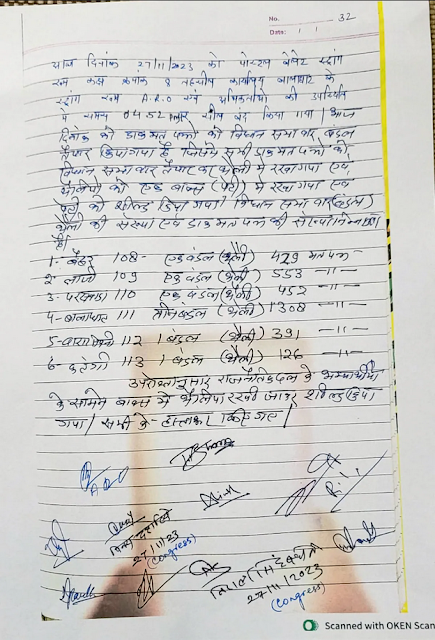 No. 32
Date: / /
आज दिनांक 27/11/2023 को पोस्टल बैलेट स्ट्रांग
रूम कक्ष क्रमांक 8 तहसील कार्यालय बालाघाट के
स्ट्रांग रूम A.R.O एवं की उपस्थिति
में समय 04:52 सील बंद किया गया। आज
दिनांक को डाकमत पत्रों को विधान सभा वार बंडल
तैयार किया गया है जिसमें सभी डाकमत पत्रों को
विधान सभा वार तैयार कर थैली में रखा गया एवं
थैलियों को एक बाक्स (पेटी) में रखा गया एवं
पेटी को शील्ड किया गया। विधान सभा वार (बंडल)
थैली की संख्या एवं डाकमत पत्र की संख्या निम्न
है।
1- बैहर 108- एक बंडल (थैली) 429 मत पत्र
2- लांजी 109 एक बंडल (थैली) 553 -11-
3- परसवाड़ा 110 एक बंडल (थैली) 452 -11-
4- बालाघाट 111 तीन बंडल (थैली) 1308 -11-
5- वारासिवनी 112 1 बंडल (थैली) 391 -11-
6- कटंगी 113 1 बंडल (थैली) 126 -11-
उपरोक्तानुसार राजनैतिक दल के अभ्यर्थियों
के सामने बाक्स में थैलियां रखी जाकर शील्ड किया
गया। सभी के हस्ताक्षर किए गए।
ARO
27/11/23
(Congress)
27/11/2023
(Congress)
Scanned with OKEN Scan